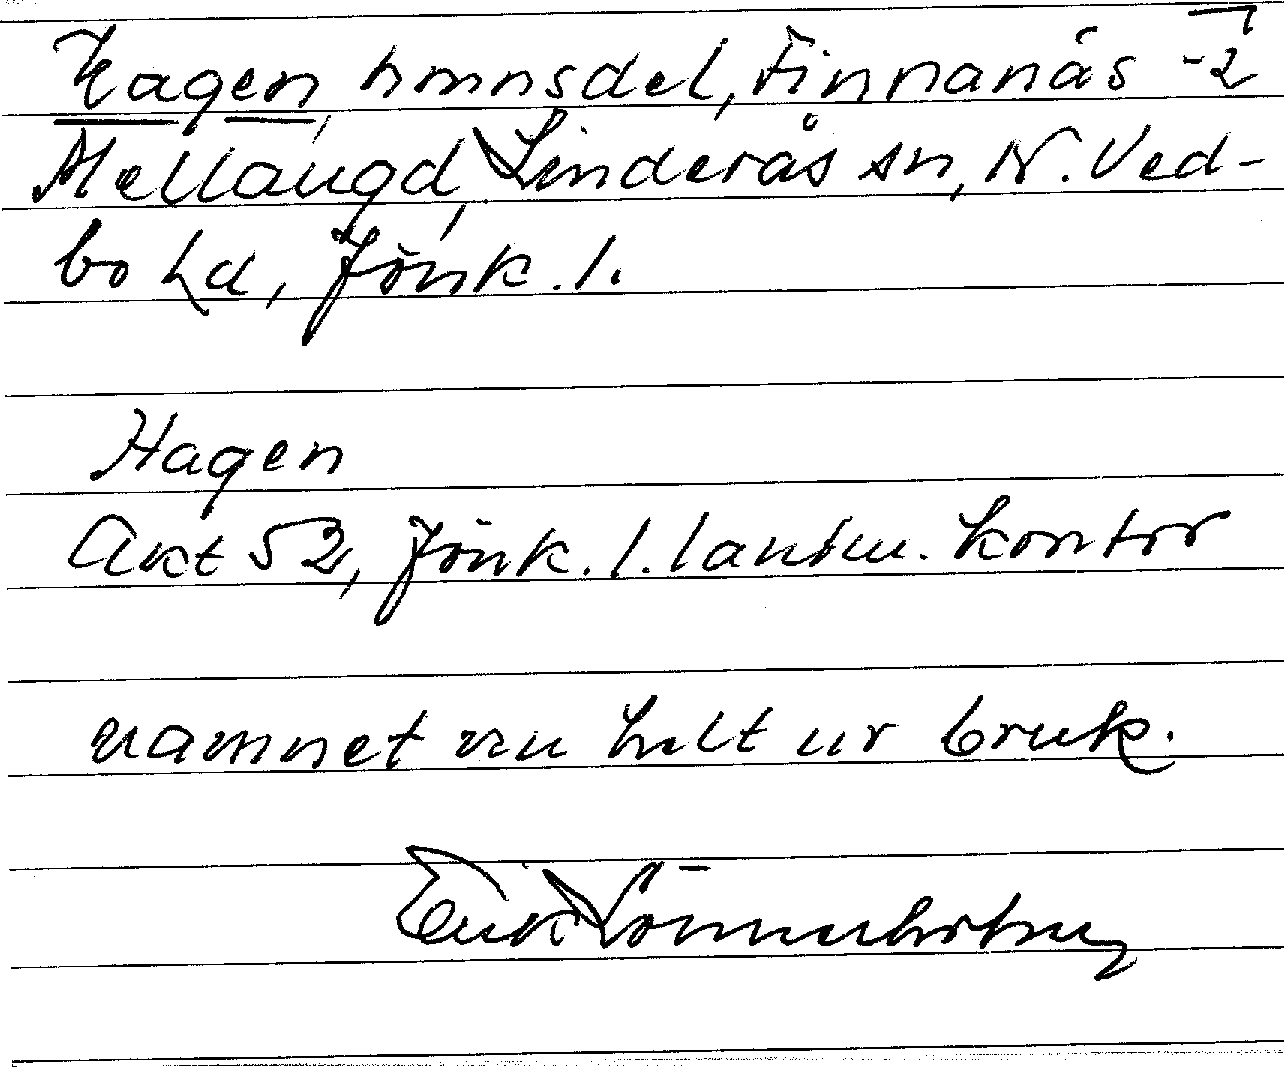 Hagen, hmnsdel, Finnanäs 1-2
Mellangd, Linderås sn, N. Ved-
bo hd, Jönk. l.
Hagen
Akt 52, Jönk. l. lantm. kontor
namnet nu helt ur bruk.
Erik